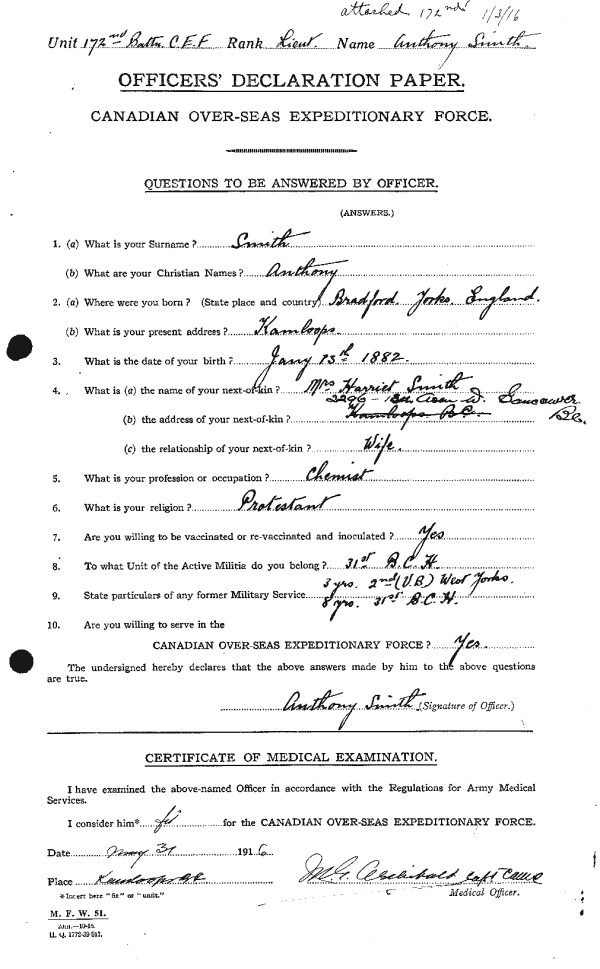 attached 172nd 1/3/16
Unit 172nd Battn. C.E.F Rank Lieut. Name Anthony Smith.
OFFICERS' DECLARATION PAPER.
CANADIAN OVER-SEAS EXPEDITIONARY FORCE.
QUESTIONS TO BE ANSWERED BY OFFICER.
(ANSWERS.)
1. (a) What is your Surname? Smith
(b) What are your Christian Names? Anthony
2. (a) Where were you born? (State place and country) Bradford. Yorks. England.
(b) What is your present address? Kamloops.
3. What is the date of your birth? Jany 13th 1882.
4. What is (a) the name of your next-of-kin? Mrs Harriet Smith
2296 - W. Vancouver
(b) the address of your next-of-kin? Kamloops B.C. Bc.
(c) the relationship of your next-of-kin? Wife.
5. What is your profession or occupation? Chemist
6. What is your religion? Protestant
7. Are you willing to be vaccinated or re-vaccinated and inoculated? Yes
8. To what Unit of the Active Militia do you belong? 31st B.C.H.
3 yrs. 2nd (V.B) West Yorks.
9. State particulars of any former Military Service 8 yrs. 31st B.C.H.
10. Are you willing to serve in the
CANADIAN OVER-SEAS EXPEDITIONARY FORCE? Yes.
The undersigned hereby declares that the above answers made by him to the above questions
are true.
Anthony Smith (Signature of Officer.)
CERTIFICATE OF MEDICAL EXAMINATION.
I have examined the above-named Officer in accordance with the Regulations for Army Medical
Services.
I consider him* fit for the CANADIAN OVER-SEAS EXPEDITIONARY FORCE.
Date 31 1916
Place Kamloops BC M.G. Archibald Capt CAMC
*Insert here "fit" or "unfit." Medical Officer.
M. F. W. 51.
H. Q. 1772-39 917.